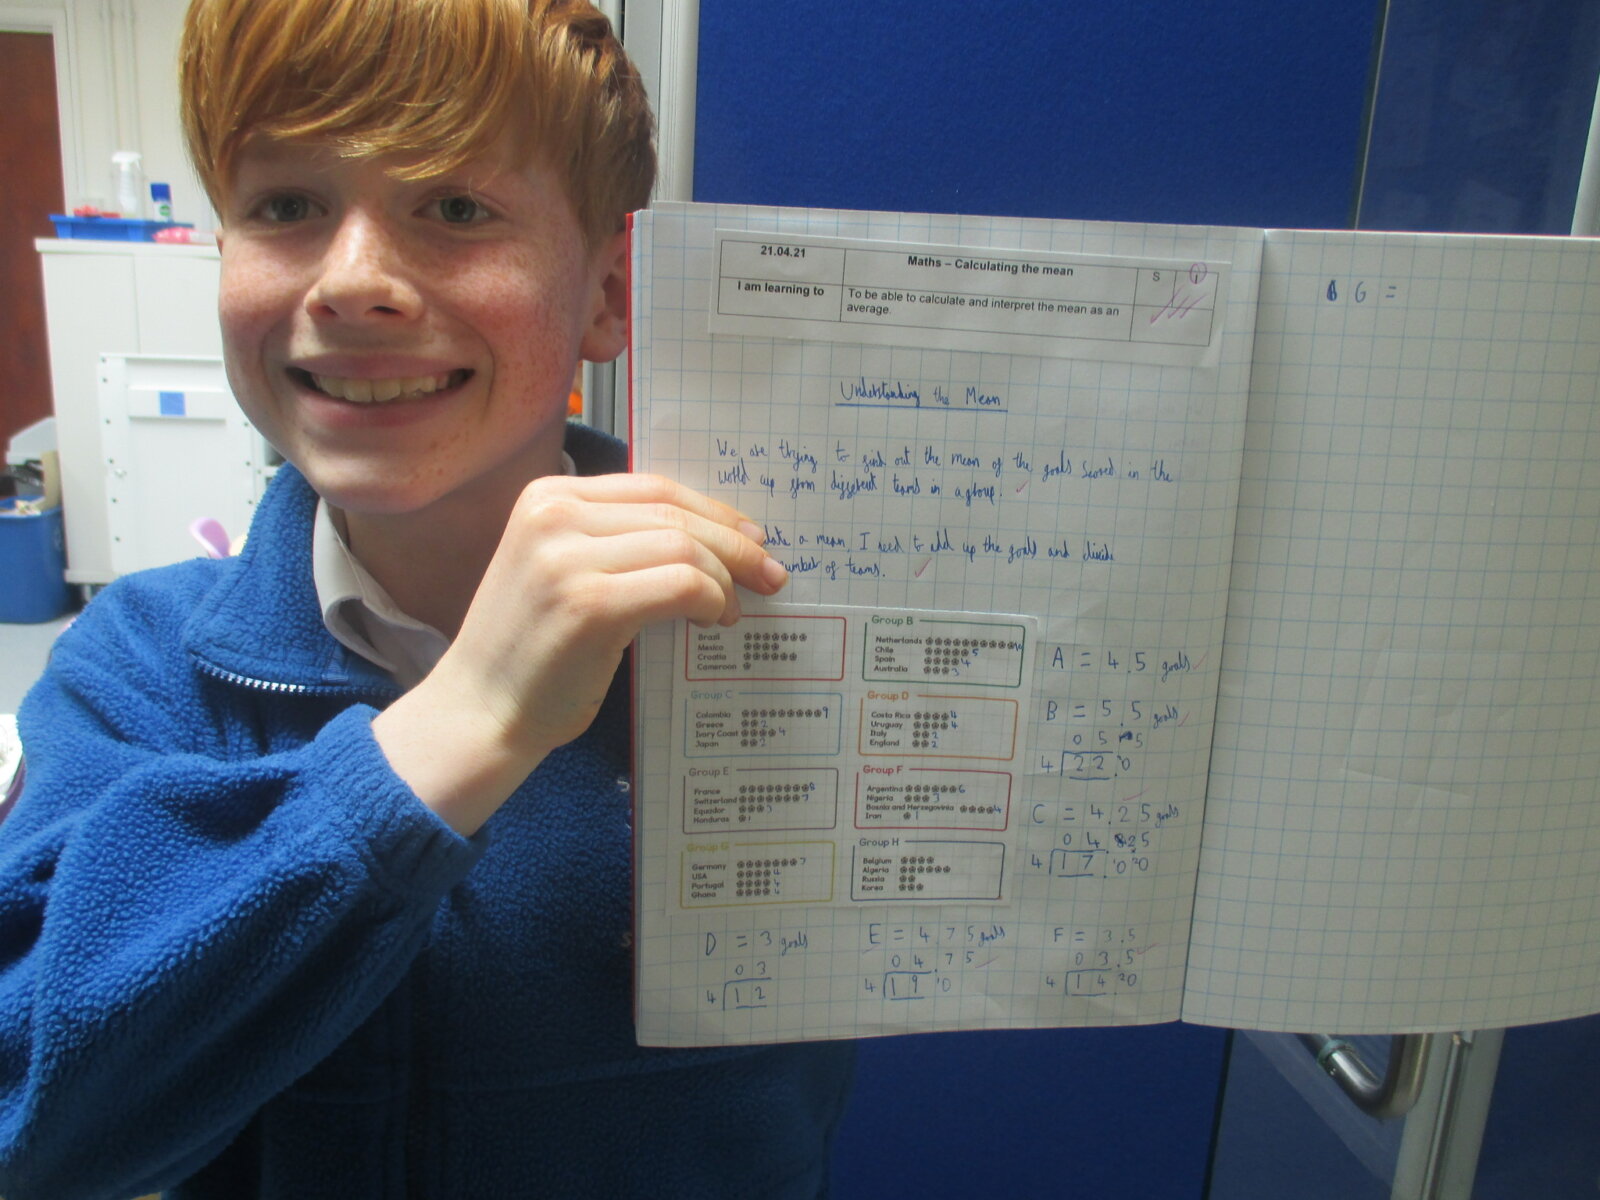 21.04.21
Maths – Calculating the mean
S
I
I am learning to
To be able to calculate and interpret the mean as an
average.
Understanding the Mean
We are trying to find out the mean of the goals scored in the
world cup from different teams in a group.
a mean, I need to add up the goals and divide
number of teams.
Brazil
Mexico
Croatia
Cameroon
Group B
Netherlands 10
Chile 5
Spain 4
Australia 3
Group C
Colombia 9
Greece 2
Ivory Coast 4
Japan 2
Group D
Costa Rica 4
Uruguay 4
Italy 2
England 2
Group E
France 8
Switzerland 7
Equador 3
Honduras 1
Group F
Argentina 6
Nigeria 3
Bosnia and Herzegovinia 4
Iran 1
Group G
Germany 7
USA 4
Portugal 4
Ghana 4
Group H
Belgium
Algeria
Russia
Korea
A = 4.5 goals
B = 5.5 goals
05.5
4 22.0
C = 4.25 goals
04.25
4 17.00
D = 3 goals
03
4 12
E = 4.75 goals
04.75
4 19.0
F = 3.5
03.5
4 14.20
G =